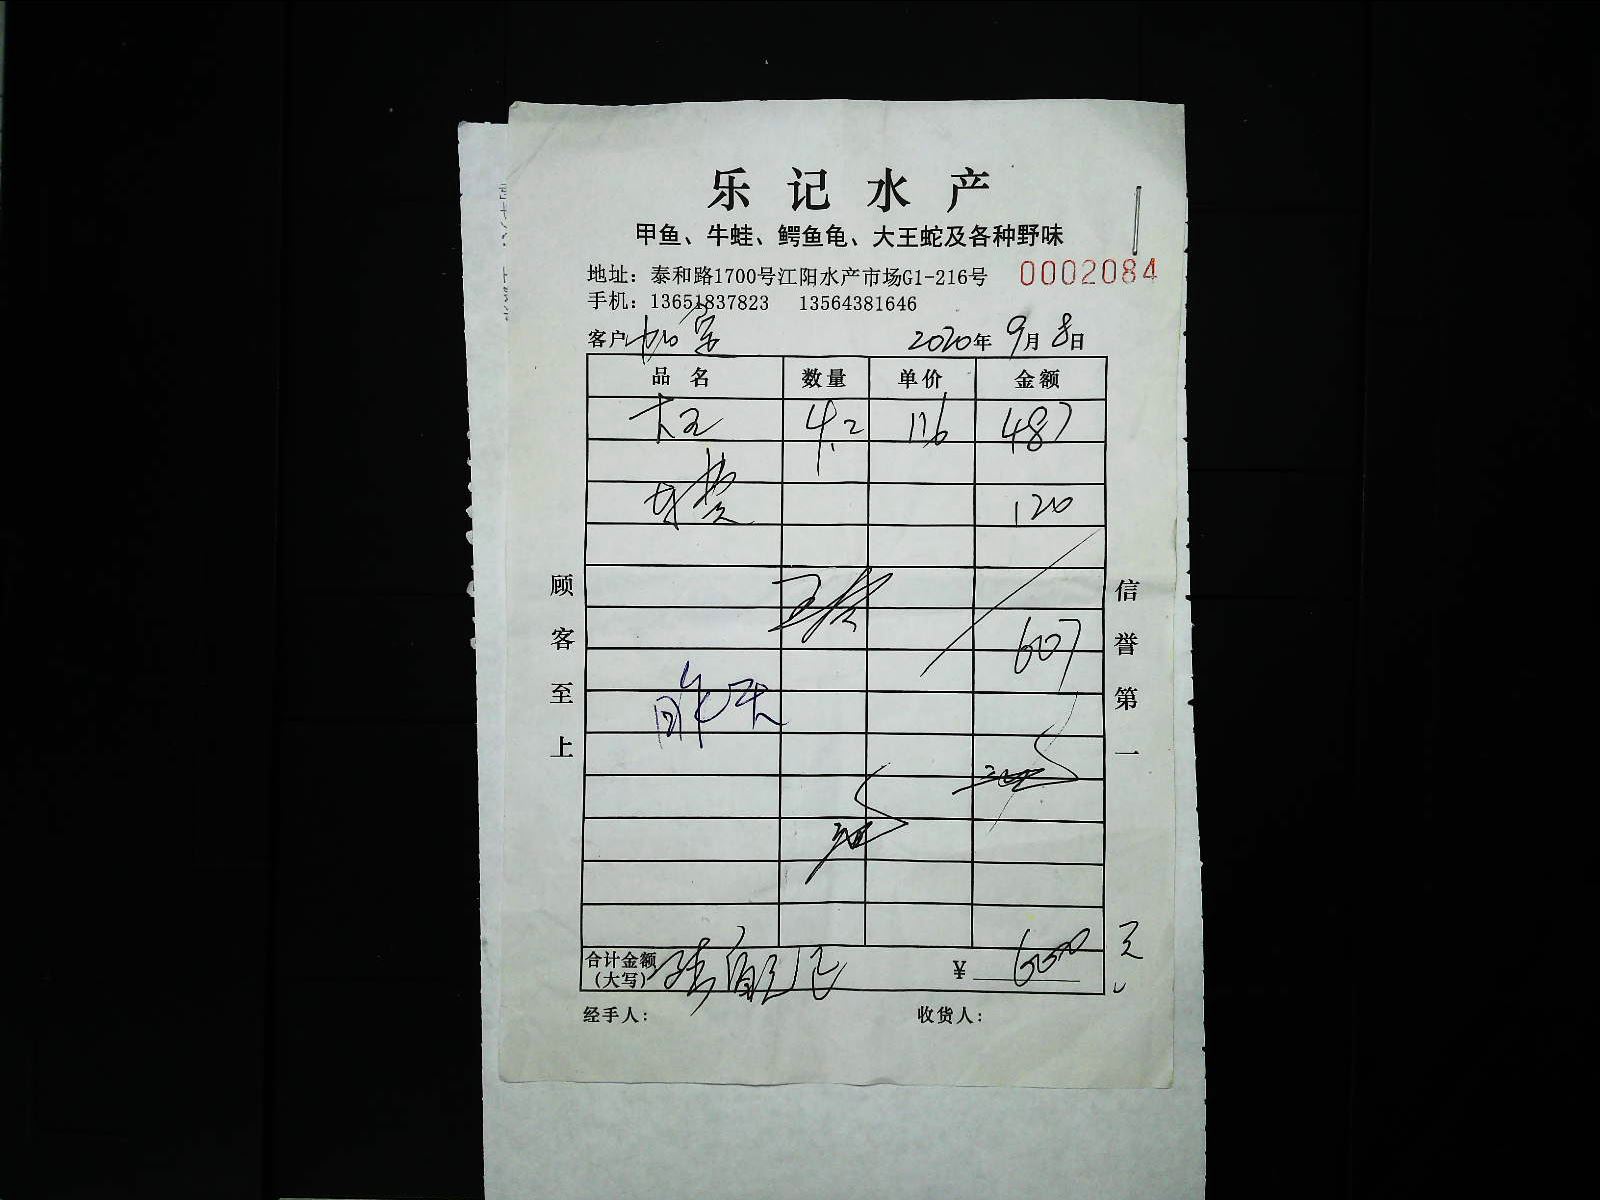 乐记水产
甲鱼、牛蛙、鳄鱼龟、大王蛇及各种野味
地址：泰和路1700号江阳水产市场G1-216号 0002084
手机：13651837823 13564381646
客户 2020年9月8日
品名 数量 单价 金额
大王 4.2 116 487
费 120
607
昨天
顾客至上
信誉第一
合计金额(大写) ¥ 600元
经手人： 收货人：